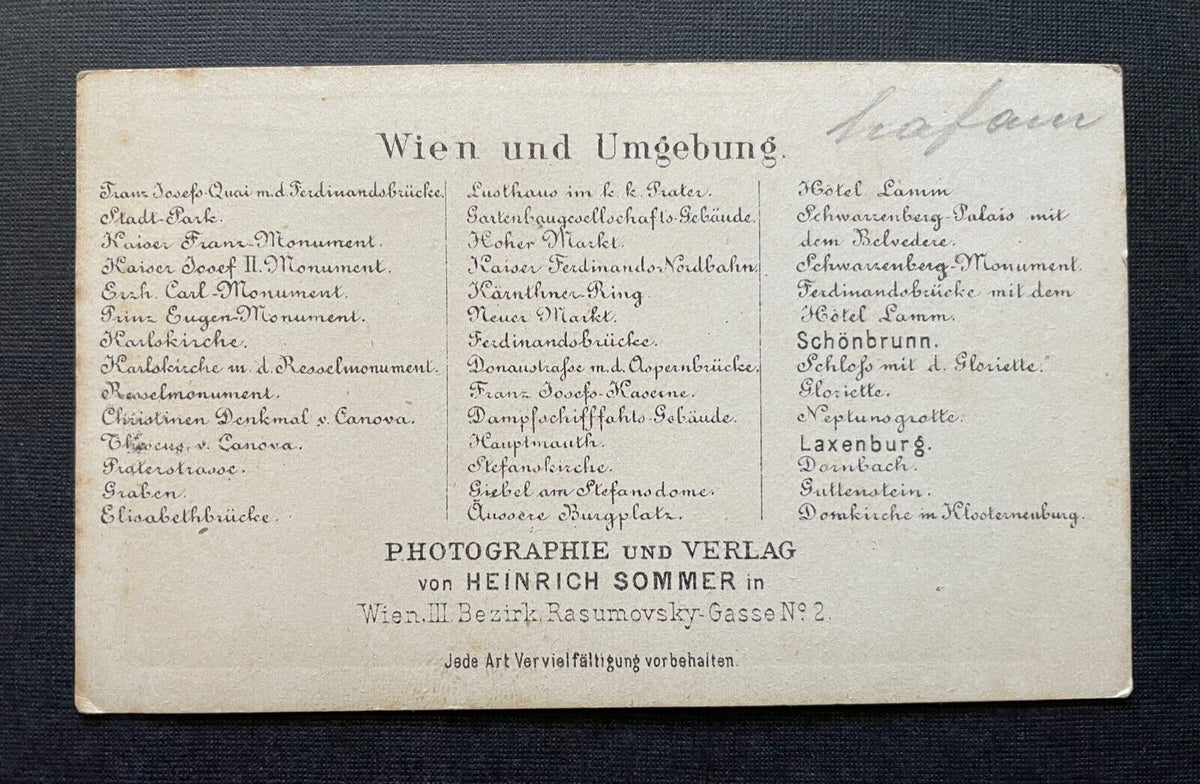 Wien und Umgebung.
Franz Josefs-Quai m.d. Ferdinandsbrücke.
Stadt-Park.
Kaiser Franz-Monument.
Kaiser Josef II. Monument.
Erzh. Carl-Monument.
Prinz Eugen-Monument.
Karlskirche.
Karlskirche m. d. Resselmonument.
Resselmonument.
Christinen Denkmal v. Canova.
Theseus, v. Canova.
Praterstrasse.
Graben.
Elisabethbrücke.
Lusthaus im k. k. Prater.
Gartenbaugesellschafts-Gebäude.
Hoher Markt.
Kaiser Ferdinands-Nordbahn.
Kärnthner-Ring.
Neuer Markt.
Ferdinandsbrücke.
Donaustraſse m.d. Aspernbrücke.
Franz Josefs-Kaserne.
Dampfschifffahts-Gebäude.
Hauptmauth.
Stefanskirche.
Giebel am Stefansdome.
Äussere Burgplatz.
Hôtel Lamm
Schwarzenberg-Palais mit
dem Belvedere.
Schwarzenberg-Monument.
Ferdinandsbrücke mit dem
Hôtel Lamm.
Schönbrunn.
Schloſs mit d. Gloriette.
Gloriette.
Neptunsgrotte.
Laxenburg.
Dornbach.
Guttenstein.
Domkirche in Klosterneuburg.
PHOTOGRAPHIE UND VERLAG
von HEINRICH SOMMER in
Wien, III. Bezirk, Rasumovsky-Gasse No. 2.
Jede Art Vervielfältigung vorbehalten.